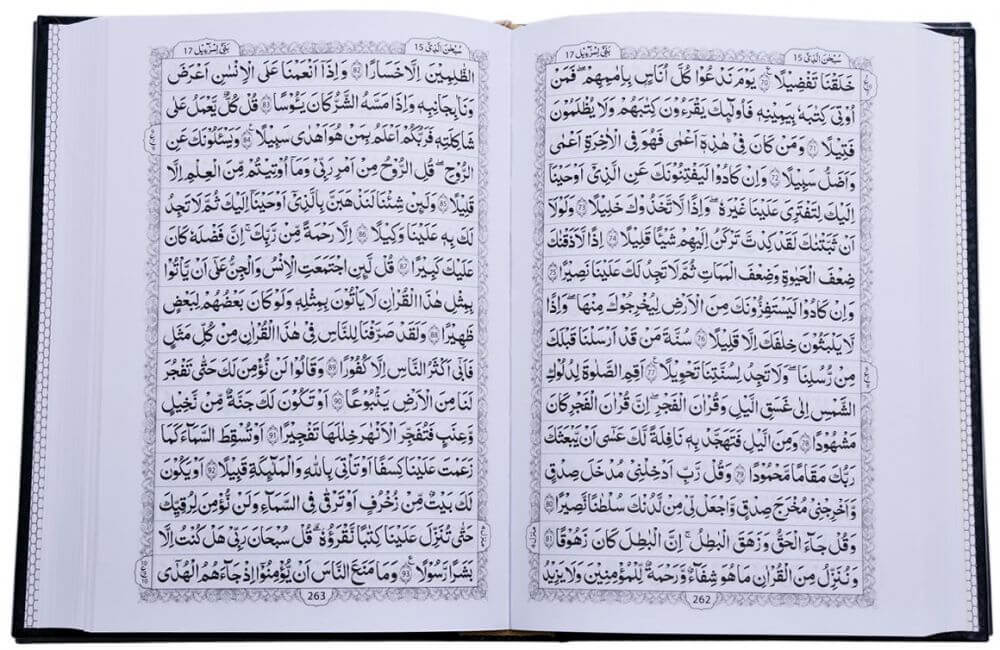 سُبْحٰنَ الَّذِیْۤ 15 بَنِیْۤ اِسْرَآءِیْل 17
خَلَقْنَا تَفْضِیْلًا ۷۰ یَوْمَ نَدْعُوْا كُلَّ اُنَاسٍۭ بِاِمَامِهِمْ ۚ فَمَنْ
اُوْتِیَ كِتٰبَهٗ بِیَمِیْنِهٖ فَاُولٰٓىِٕكَ یَقْرَءُوْنَ كِتٰبَهُمْ وَلَا یُظْلَمُوْنَ
فَتِیْلًا ۷۱ وَمَنْ كَانَ فِیْ هٰذِهٖۤ اَعْمٰی فَهُوَ فِی الْاٰخِرَةِ اَعْمٰی
وَاَضَلُّ سَبِیْلًا ۷۲ وَاِنْ كَادُوْا لَیَفْتِنُوْنَكَ عَنِ الَّذِیْۤ اَوْحَیْنَاۤ
اِلَیْكَ لِتَفْتَرِیَ عَلَیْنَا غَیْرَهٗ ۖ وَاِذًا لَّاتَّخَذُوْكَ خَلِیْلًا ۷۳ وَلَوْلَاۤ
اَنْ ثَبَّتْنٰكَ لَقَدْ كِدْتَّ تَرْكَنُ اِلَیْهِمْ شَیْـًٔا قَلِیْلًا ۷۴ اِذًا لَّاَذَقْنٰكَ
ضِعْفَ الْحَیٰوةِ وَضِعْفَ الْمَمَاتِ ثُمَّ لَا تَجِدُ لَكَ عَلَیْنَا نَصِیْرًا ۷۵
وَاِنْ كَادُوْا لَیَسْتَفِزُّوْنَكَ مِنَ الْاَرْضِ لِیُخْرِجُوْكَ مِنْهَا وَاِذًا
لَّا یَلْبَثُوْنَ خِلٰفَكَ اِلَّا قَلِیْلًا ۷۶ سُنَّةَ مَنْ قَدْ اَرْسَلْنَا قَبْلَكَ
مِنْ رُّسُلِنَا وَلَا تَجِدُ لِسُنَّتِنَا تَحْوِیْلًا ۷۷ اَقِمِ الصَّلٰوةَ لِدُلُوْكِ
الشَّمْسِ اِلٰی غَسَقِ الَّیْلِ وَقُرْاٰنَ الْفَجْرِ ؕ اِنَّ قُرْاٰنَ الْفَجْرِ كَانَ
مَشْهُوْدًا ۷۸ وَمِنَ الَّیْلِ فَتَهَجَّدْ بِهٖ نَافِلَةً لَّكَ عَسٰۤی اَنْ یَّبْعَثَكَ
رَبُّكَ مَقَامًا مَّحْمُوْدًا ۷۹ وَقُلْ رَّبِّ اَدْخِلْنِیْ مُدْخَلَ صِدْقٍ
وَّاَخْرِجْنِیْ مُخْرَجَ صِدْقٍ وَّاجْعَلْ لِّیْ مِنْ لَّدُنْكَ سُلْطٰنًا نَّصِیْرًا ۸۰
وَقُلْ جَآءَ الْحَقُّ وَزَهَقَ الْبَاطِلُ ؕ اِنَّ الْبَاطِلَ كَانَ زَهُوْقًا ۸۱
وَنُنَزِّلُ مِنَ الْقُرْاٰنِ مَا هُوَ شِفَآءٌ وَّرَحْمَةٌ لِّلْمُؤْمِنِیْنَ وَلَا یَزِیْدُ
262
سُبْحٰنَ الَّذِیْۤ 15 بَنِیْۤ اِسْرَآءِیْل 17
الظّٰلِمِیْنَ اِلَّا خَسَارًا ۸۲ وَاِذَاۤ اَنْعَمْنَا عَلَی الْاِنْسَانِ اَعْرَضَ
وَنَاٰ بِجَانِبِهٖ وَاِذَا مَسَّهُ الشَّرُّ كَانَ یَئُوْسًا ۸۳ قُلْ كُلٌّ یَّعْمَلُ عَلٰی
شَاكِلَتِهٖ فَرَبُّكُمْ اَعْلَمُ بِمَنْ هُوَ اَهْدٰی سَبِیْلًا ۸۴ وَیَسْـَٔلُوْنَكَ عَنِ
الرُّوْحِ ؕ قُلِ الرُّوْحُ مِنْ اَمْرِ رَبِّیْ وَمَاۤ اُوْتِیْتُمْ مِّنَ الْعِلْمِ اِلَّا
قَلِیْلًا ۸۵ وَلَىِٕنْ شِئْنَا لَنَذْهَبَنَّ بِالَّذِیْۤ اَوْحَیْنَاۤ اِلَیْكَ ثُمَّ لَا تَجِدُ
لَكَ بِهٖ عَلَیْنَا وَكِیْلًا ۸۶ اِلَّا رَحْمَةً مِّنْ رَّبِّكَ ؕ اِنَّ فَضْلَهٗ كَانَ
عَلَیْكَ كَبِیْرًا ۸۷ قُلْ لَّىِٕنِ اجْتَمَعَتِ الْاِنْسُ وَالْجِنُّ عَلٰۤی اَنْ یَّاْتُوْا
بِمِثْلِ هٰذَا الْقُرْاٰنِ لَا یَاْتُوْنَ بِمِثْلِهٖ وَلَوْ كَانَ بَعْضُهُمْ لِبَعْضٍ
ظَهِیْرًا ۸۸ وَلَقَدْ صَرَّفْنَا لِلنَّاسِ فِیْ هٰذَا الْقُرْاٰنِ مِنْ كُلِّ مَثَلٍ
فَاَبٰۤی اَكْثَرُ النَّاسِ اِلَّا كُفُوْرًا ۸۹ وَقَالُوْا لَنْ نُّؤْمِنَ لَكَ حَتّٰی تَفْجُرَ
لَنَا مِنَ الْاَرْضِ یَنْۢبُوْعًا ۹۰ اَوْ تَكُوْنَ لَكَ جَنَّةٌ مِّنْ نَّخِیْلٍ
وَّعِنَبٍ فَتُفَجِّرَ الْاَنْهٰرَ خِلٰلَهَا تَفْجِیْرًا ۹۱ اَوْ تُسْقِطَ السَّمَآءَ كَمَا
زَعَمْتَ عَلَیْنَا كِسَفًا اَوْ تَاْتِیَ بِاللّٰهِ وَالْمَلٰٓىِٕكَةِ قَبِیْلًا ۹۲ اَوْ یَكُوْنَ
لَكَ بَیْتٌ مِّنْ زُخْرُفٍ اَوْ تَرْقٰی فِی السَّمَآءِ وَلَنْ نُّؤْمِنَ لِرُقِیِّكَ
حَتّٰی تُنَزِّلَ عَلَیْنَا كِتٰبًا نَّقْرَؤُهٗ ؕ قُلْ سُبْحَانَ رَبِّیْ هَلْ كُنْتُ اِلَّا
بَشَرًا رَّسُوْلًا ۹۳ وَمَا مَنَعَ النَّاسَ اَنْ یُّؤْمِنُوْۤا اِذْ جَآءَهُمُ الْهُدٰۤی
263